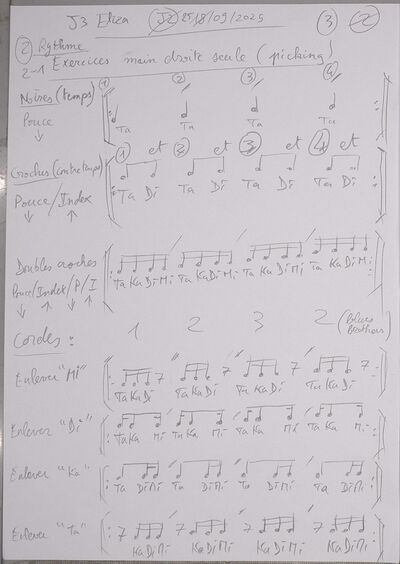 J3 Eliza (J2) 25,18/09/2025 (3) (2)
(2) Rythme
2-1 Exercices main droite seule (picking)
Noires (temps) (1) (2) (3) (4)
Pouce Ta Ta Ta Ta
↓
Croches (contretemps) (1) et (2) et (3) et (4) et
Pouce/Index Ta Di Ta Di Ta Di Ta Di
↓ ↑
Doubles croches
Pouce/Index/P/I Ta Ka Di Mi Ta Ka Di Mi Ta Ka Di Mi Ta Ka Di Mi
↓ ↑ ↓ ↑
Cordes : 1 2 3 2 (Blues Brothers)
Enlever "Mi" 7 7 7 7
Ta Ka Di Ta Ka Di Ta Ka Di Ta Ka Di
Enlever "Di"
Ta Ka Mi Ta Ka Mi Ta Ka Mi Ta Ka Mi
Enlever "Ka"
Ta Di Mi Ta Di Mi Ta Di Mi Ta Di Mi
Enlever "Ta" 7 7 7 7
Ka Di Mi Ka Di Mi Ka Di Mi Ka Di Mi